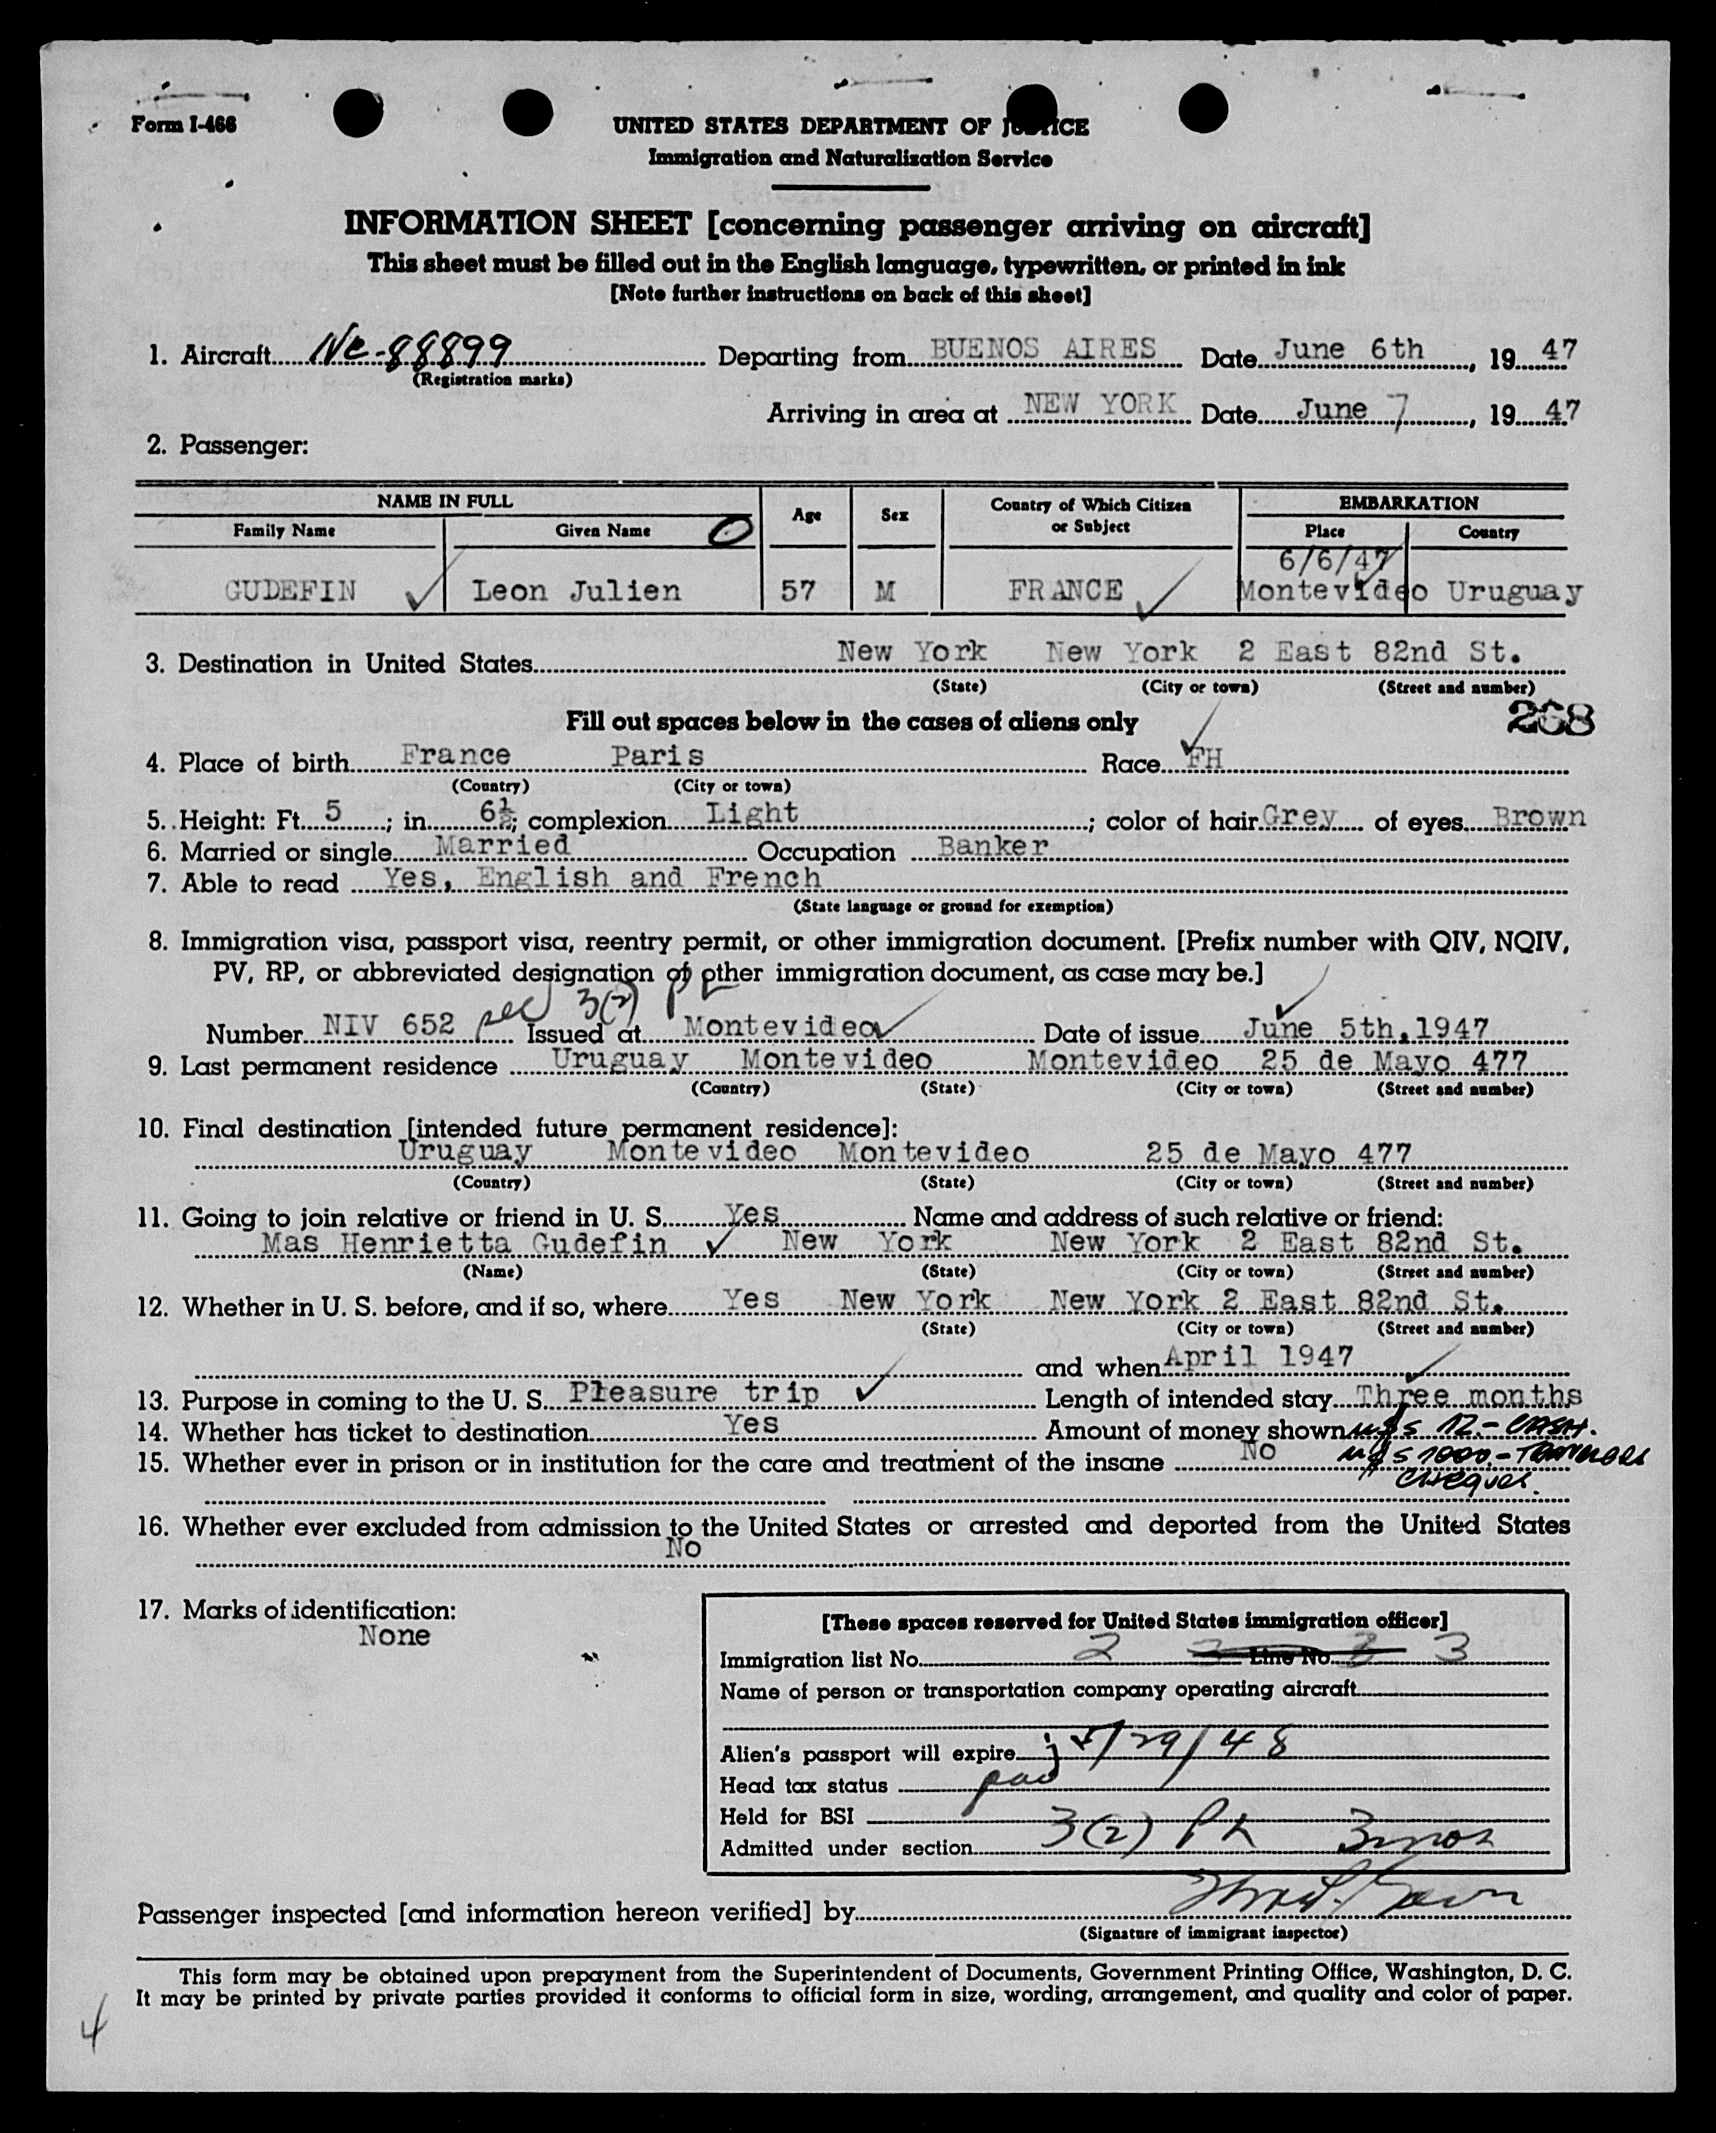 Form I-466
UNITED STATES DEPARTMENT OF JUSTICE
Immigration and Naturalization Service
INFORMATION SHEET [concerning passenger arriving on aircraft]
This sheet must be filled out in the English language, typewritten, or printed in ink
[Note further instructions on back of this sheet]
1. Aircraft Nc-88899 Departing from BUENOS AIRES Date June 6th, 19 47
(Registration marks)
Arriving in area at NEW YORK Date June 7, 19 47
2. Passenger:
NAME IN FULL Age Sex Country of Which Citizen or Subject EMBARKATION
Family Name Given Name Place Country
6/6/47
GUDEFIN Leon Julien 57 M FRANCE Montevideo Uruguay
3. Destination in United States New York New York 2 East 82nd St.
(State) (City or town) (Street and number)
Fill out spaces below in the cases of aliens only 268
4. Place of birth France Paris Race FH
(Country) (City or town)
5. Height: Ft. 5; in. 6½; complexion Light; color of hair Grey of eyes Brown
6. Married or single Married Occupation Banker
7. Able to read Yes, English and French
(State language or ground for exemption)
8. Immigration visa, passport visa, reentry permit, or other immigration document. [Prefix number with QIV, NQIV,
PV, RP, or abbreviated designation of other immigration document, as case may be.]
3(2)
Number NIV 652 Issued at Montevideo Date of issue June 5th, 1947
9. Last permanent residence Uruguay Montevideo Montevideo 25 de Mayo 477
(Country) (State) (City or town) (Street and number)
10. Final destination [intended future permanent residence]:
Uruguay Montevideo Montevideo 25 de Mayo 477
(Country) (State) (City or town) (Street and number)
11. Going to join relative or friend in U. S. Yes Name and address of such relative or friend:
Mas Henrietta Gudefin New York New York 2 East 82nd St.
(Name) (State) (City or town) (Street and number)
12. Whether in U. S. before, and if so, where Yes New York New York 2 East 82nd St.
(State) (City or town) (Street and number)
and when April 1947
13. Purpose in coming to the U. S. Pleasure trip Length of intended stay Three months
14. Whether has ticket to destination Yes Amount of money shown u$s 12.- CASH.
15. Whether ever in prison or in institution for the care and treatment of the insane No u$s 1000.-
cheques.
16. Whether ever excluded from admission to the United States or arrested and deported from the United States
No
17. Marks of identification:
None
[These spaces reserved for United States immigration officer]
Immigration list No. 2 Line No. 3
Name of person or transportation company operating aircraft
Alien's passport will expire /29/48
Head tax status
Held for BSI
Admitted under section 3(2) 3 mos
Passenger inspected [and information hereon verified] by
(Signature of immigrant inspector)
This form may be obtained upon prepayment from the Superintendent of Documents, Government Printing Office, Washington, D. C.
It may be printed by private parties provided it conforms to official form in size, wording, arrangement, and quality and color of paper.
4